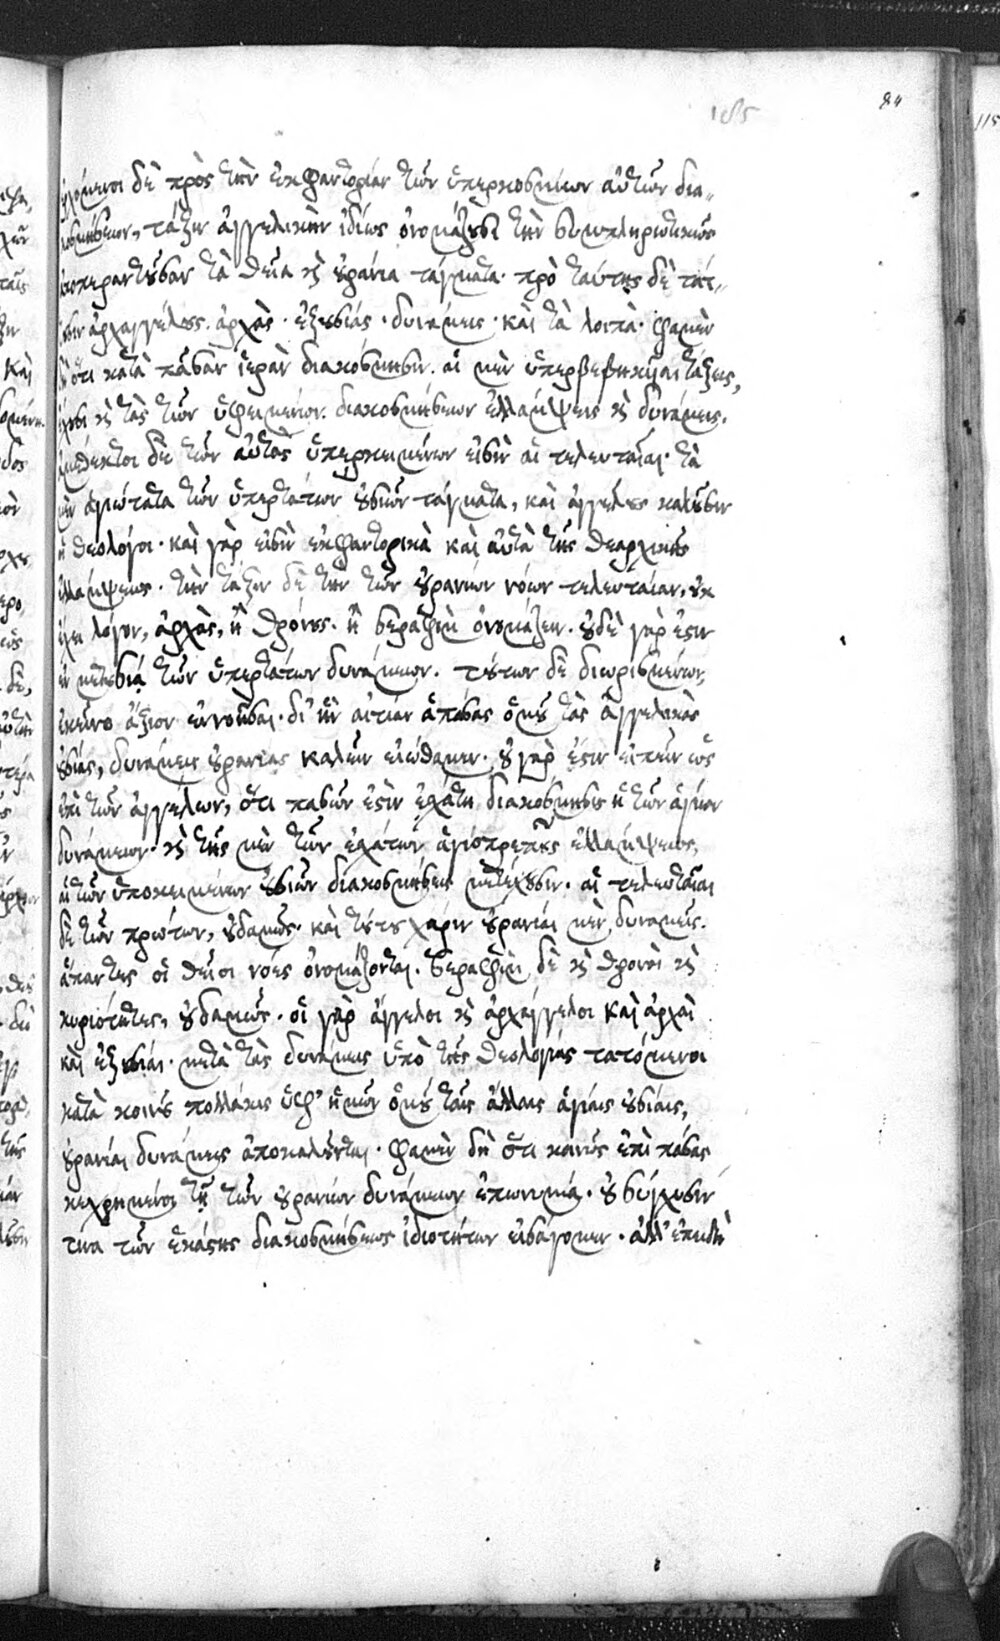 84
115
185
ἐρχόμενοι δὲ πρὸς τὴν ἐκφαντορίαν τῶν ὑπερκοσμίων αὐτῶν δια-
κοσμήσεων, τάξιν ἀγγελικὴν ἰδίως ὀνομάζουσι τὴν συμπληρωτικῶς
ἀποπερατοῦσαν τὰ θεῖα καὶ οὐράνια τάγματα. πρὸ ταύτης δὲ τάτ-
τουσιν ἀρχαγγέλους. ἀρχὰς. ἐξουσίας. δυνάμεις. καὶ τὰ λοιπὰ. φαμὲν
δὴ ὅτι κατὰ πᾶσαν ἱερὰν διακόσμησιν. αἱ μὲν ὑπερβεβηκυῖαι τάξεις,
ἔχουσι καὶ τὰς τῶν ὑφειμένων. διακοσμήσεων ἐλλάμψεις καὶ δυνάμεις.
ἀμέθεκτοι δὲ τῶν αὐτὰς ὑπερκειμένων εἰσὶν αἱ τελευταῖαι. τὰ
μὲν ἁγιώτατα τῶν ὑπερτάτων οὐσιῶν τάγματα, καὶ ἀγγέλους καλοῦσιν
οἱ θεολόγοι. καὶ γὰρ εἰσὶν ἐκφαντορικὰ καὶ αὐτὰ τῆς θεαρχικῆς
ἐλλάμψεως. τὴν τάξιν δὲ τὴν τῶν οὐρανίων νόων τελευταίαν, οὐκ
ἔχει λόγον, ἀρχὰς, ἢ θρόνους. ἢ σεραφὶμ ὀνομάζειν. οὐδὲ γὰρ ἐστιν
ἐν μετουσίᾳ τῶν ὑπερτάτων δυνάμεων. τούτων δὲ διωρισμένων,
ἐκεῖνο ἄξιον ἐννοῆσαι. δι' ἣν αἰτίαν ἁπάσας ὁμοῦ τὰς ἀγγελικὰς
οὐσίας, δυνάμεις οὐρανίας καλεῖν εἰώθαμεν. οὐ γὰρ ἐστιν εἰπεῖν ὡς
ἐπὶ τῶν ἀγγέλων, ὅτι πασῶν ἐστὶν ἐσχάτη διακόσμησις ἡ τῶν ἁγίων
δυνάμεων. καὶ τῆς μὲν τῶν ἐσχάτων ἁγιοπρεποῦς ἐλλάμψεως,
αἱ τῶν ὑποκειμένων οὐσιῶν διακοσμήσεις μετέχουσιν. αἱ τελευταῖαι
δὲ τῶν πρώτων, οὐδαμῶς. καὶ τούτου χάριν οὐράνιαι μὲν δυνάμεις.
ἅπαντες οἱ θεῖοι νόες ὀνομάζονται. σεραφὶμ δὲ καὶ θρόνοι καὶ
κυριότητες, οὐδαμῶς. οἱ γὰρ ἄγγελοι καὶ ἀρχάγγελοι καὶ ἀρχαὶ
καὶ ἐξουσίαι. μετὰ τὰς δυνάμεις ὑπὸ τῆς θεολογίας τατόμενοι
κατὰ κοινοῦ πολλάκις ὑφ' ἡμῶν ὁμοῦ ταῖς ἄλλαις ἁγίαις οὐσίαις,
οὐράνιαι δυνάμεις ἀποκαλοῦνται. φαμὲν δὴ ὅτι κοινῶς ἐπὶ πάσας
κεχρημένοι τῇ τῶν οὐρανίων δυνάμεων ἐπωνυμίᾳ. οὐ σύγχυσίν
τινα τῶν ἑκάστης διακοσμήσεως ἰδιοτήτων εἰσάγομεν. ἀλλ' ἐπειδὴ